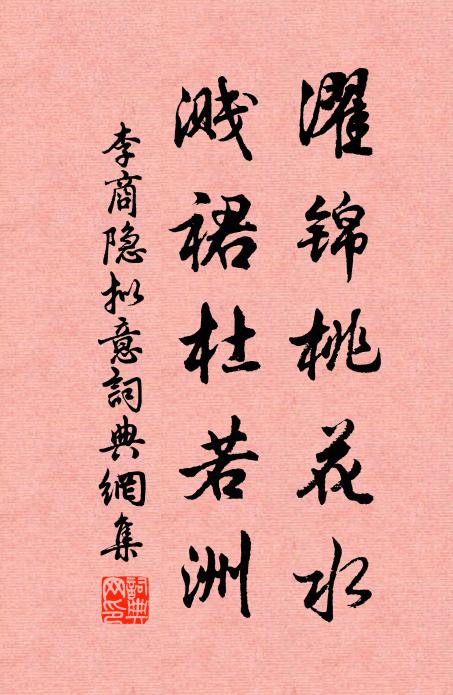 濯锦桃花水
溅裙杜若洲
李商隐拟意詞典網集
詞典網印